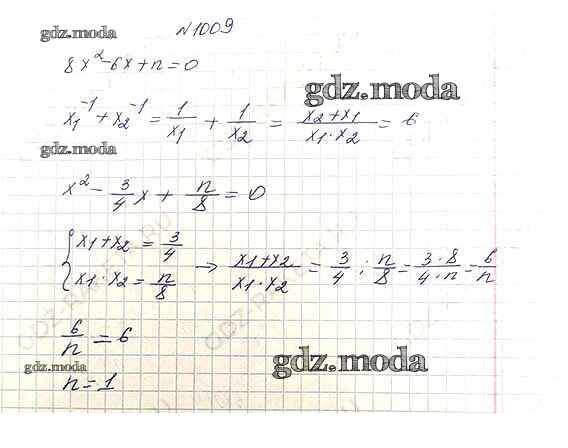 N1009
gdz.moda
8x² - 6x + n = 0
gdz.moda
x₁⁻¹ + x₂⁻¹ = 1/x₁ + 1/x₂ = (x₂ + x₁)/(x₁ · x₂) = 6
gdz.moda
x² - 3/4 x + n/8 = 0
{ x₁ + x₂ = 3/4
x₁ · x₂ = n/8 → (x₁ + x₂)/(x₁ · x₂) = 3/4 : n/8 = (3 · 8)/(4 · n) = 6/n
6/n = 6
gdz.moda
gdz.moda
n = 1